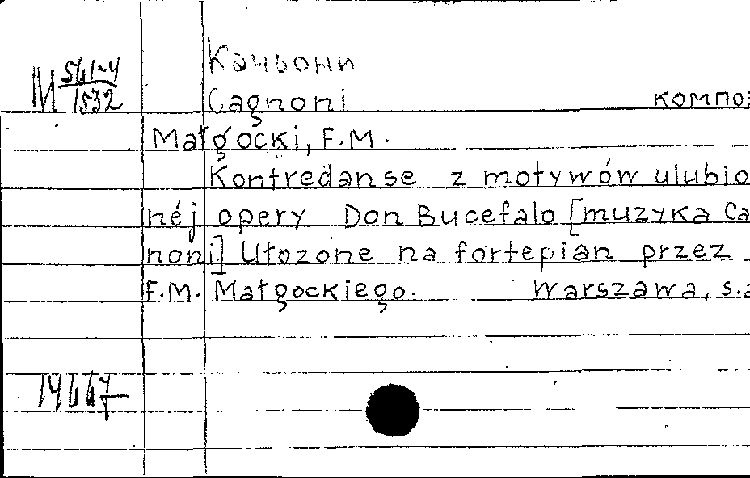 Каньони
М 561-4/1532
Cagnoni композ
Małgocki, F.M.
Kontredanse z motywów ulubio
néj opery Don Bucefalo [muzyka Ca
noni] Ułozone na fortepian przez
F.M. Małgockiego. Warszawa, s.a